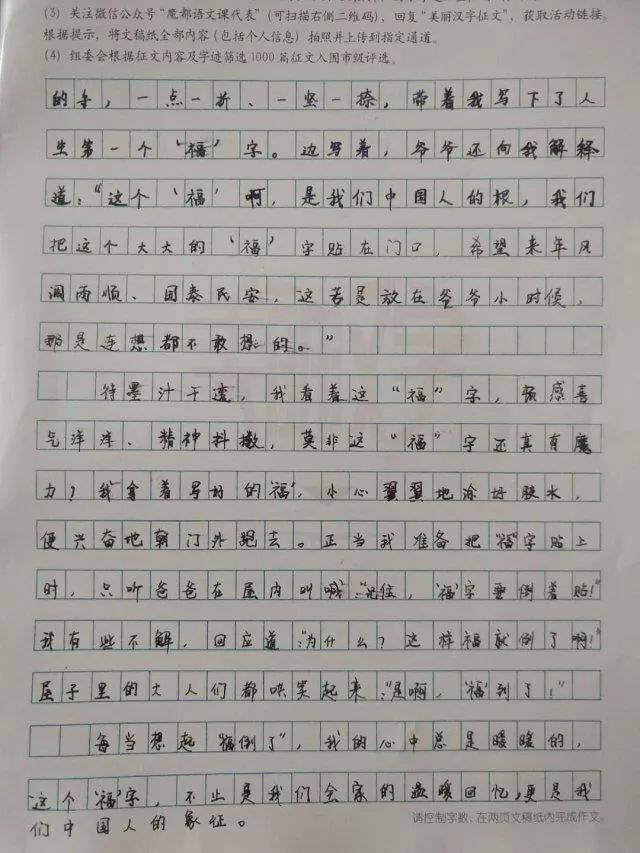 (3) 关注微信公众号“魔都语文课代表”(可扫描右侧二维码),回复“美丽汉字征文”,获取活动链接。
根据提示,将文稿纸全部内容(包括个人信息)拍照并上传到指定通道。
(4) 组委会根据征文内容及字迹筛选1000篇征文入围市级评选。
的手,一点一折、一竖一捺,带着我写下了人
生第一个‘福’字。边写着,爷爷还向我解释
道:“这个‘福’啊,是我们中国人的根,我们
把这个大大的‘福’字贴在门口,希望来年风
调雨顺、国泰民安,这若是放在爷爷小时候,
那是连想都不敢想的。”
待墨汁干透,我看着这“福”字,顿感喜
气洋洋、精神抖擞,莫非这“福”字还真有魔
力?我拿着写好的‘福’,小心翼翼地涂好胶水,
便兴奋地朝门外跑去。正当我准备把“福”字贴上
时,只听爸爸在屋内叫喊:“记住,‘福’字要倒着贴!”
我有些不解,回应道:“为什么?这样福就倒了啊!”
屋子里的大人们都哄笑起来:“是啊,‘福’到了!”
每当想起“福倒了”,我的心中总是暖暖的,
这个‘福’字,不止是我们全家的温暖回忆,更是我
们中国人的象征。
请控制字数,在两页文稿纸内完成作文。